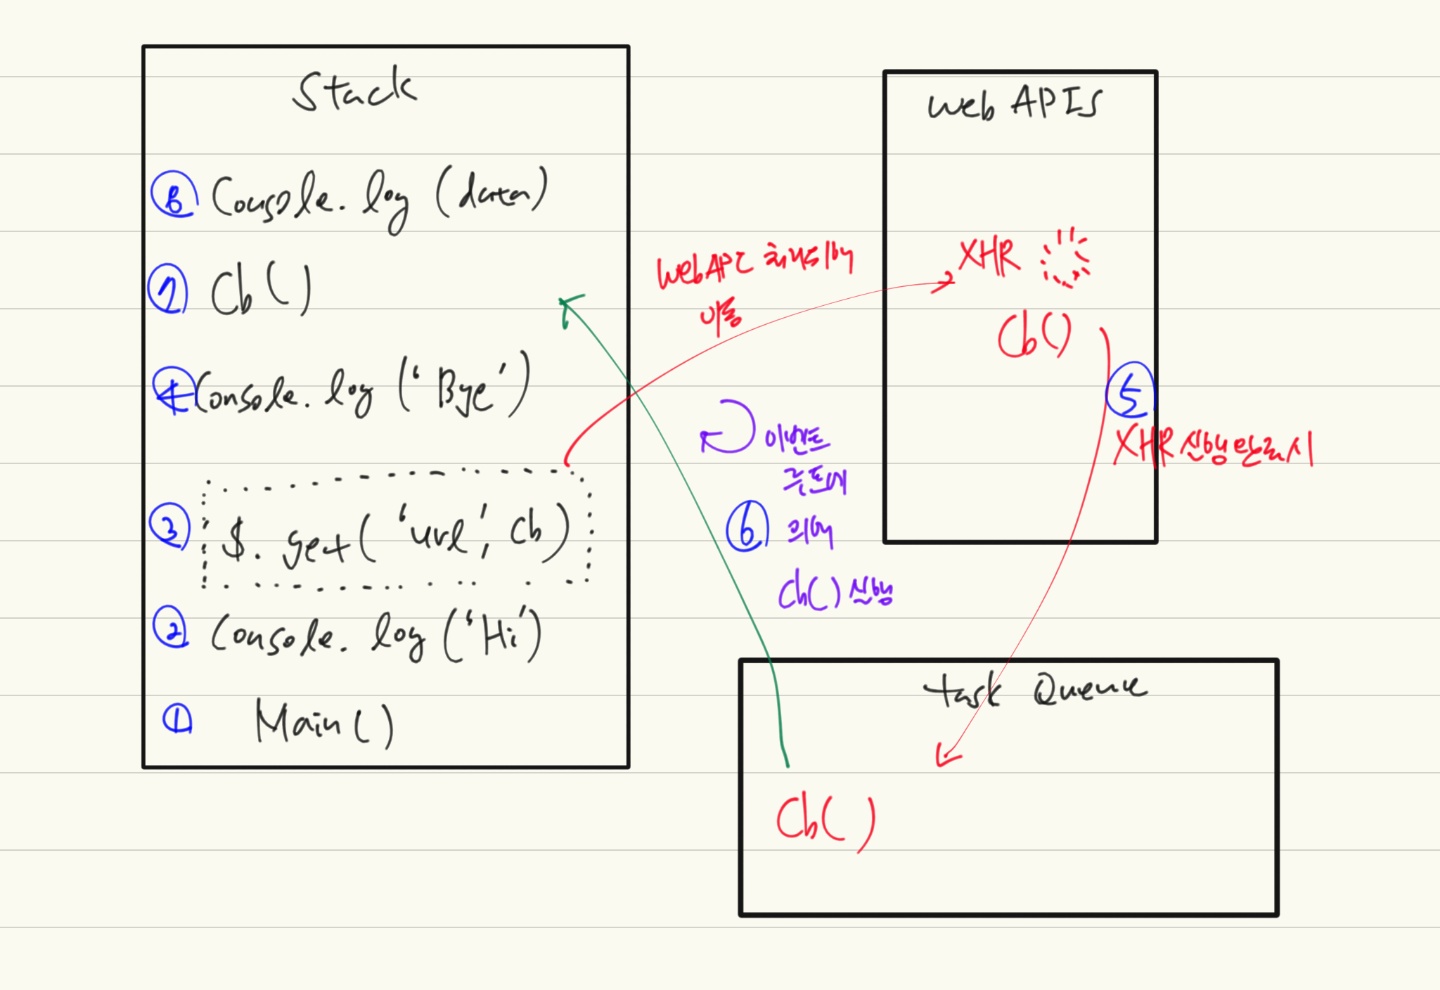 Stack
⑧ Console.log (data)
⑦ Cb()
④ Console.log ('Bye')
③ $.get('url', Cb)
② Console.log ('Hi')
① Main()
Web API
이동
Web APIS
XHR
Cb()
⑤
XHR 실행 완료시
이벤트
루프에
⑥ 의해
Cb() 실행
task Queue
Cb()